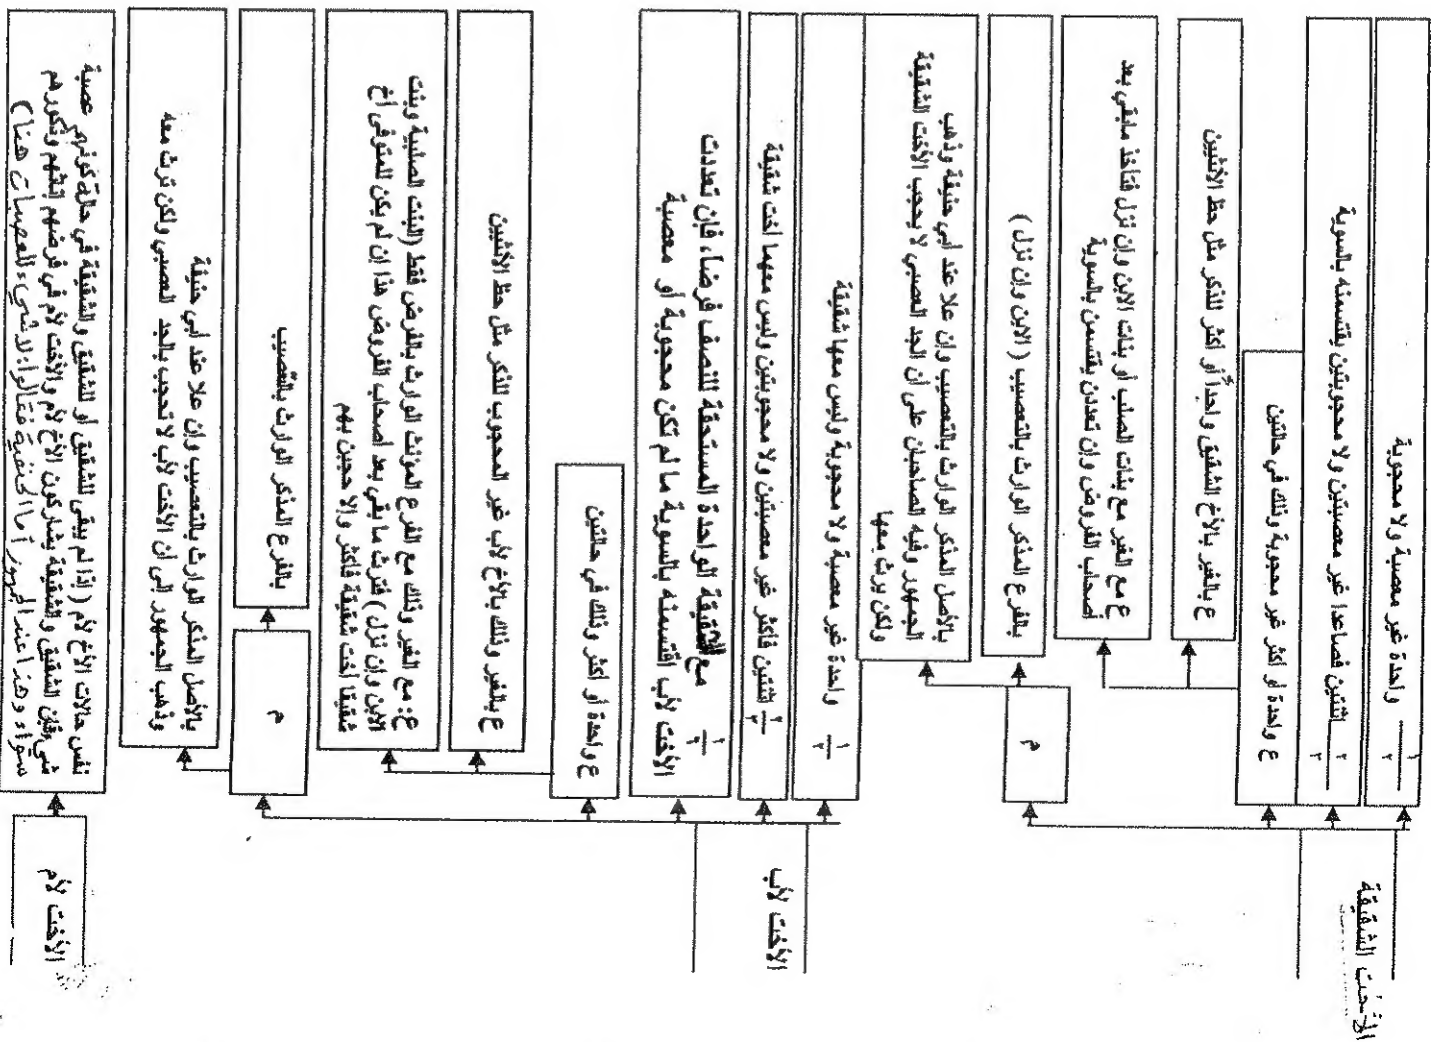 الأخت الشقيقة
١/٢ واحدة غير معصبة ولا محجوبة
٢/٣ اثنتين فصاعدا غير معصبتين ولا محجوبتين يقتسمنه بالسوية
ع واحدة أو أكثر غير محجوبة وذلك في حالتين
ع بالغير بالأخ الشقيق واحداً أو أكثر للذكر مثل حظ الأنثيين
ع مع الغير مع بنات الصلب أو بنات الابن وإن نزل فتأخذ مابقي بعد
أصحاب الفروض وإن تعددن يقتسمن بالسوية
م
بالفرع المذكر الوارث بالتعصيب ( الابن وإن نزل )
بالأصل المذكر الوارث بالتعصيب وإن علا عند أبي حنيفة وذهب
الجمهور وفيه الصاحبان على أن الجد العصبي لا يحجب الأخت الشقيقة
ولكن يرث معها
الأخت لأب
١/٢ واحدة غير معصبة ولا محجوبة وليس معها شقيقة
٢/٣ اثنتين فأكثر غير معصبتين ولا محجوبتين وليس معهما أخت شقيقة
١/٦ مع الشقيقة الواحدة المستحقة للنصف فرضا، فإن تعددت
الأخت لأب اقتسمنه بالسوية ما لم تكن محجوبة أو معصبة
ع واحدة أو أكثر وذلك في حالتين
ع بالغير وذلك بالأخ لأب غير المحجوب للذكر مثل حظ الأنثيين
ع: مع الغير وذلك مع الفرع المؤنث الوارث بالفرض فقط (البنت الصلبية وبنت
الابن وإن نزل ) فترث ما بقي بعد أصحاب الفروض هذا إن لم يكن للمتوفى أخ
شقيقا أخت شقيقة فأكثر وإلا حجبن بهم
م
بالفرع المذكر الوارث بالتعصيب
بالأصل المذكر الوارث بالتعصيب وإن علا عند أبي حنيفة
وذهب الجمهور إلى أن الأخت لأب لا تحجب بالجد العصبي ولكن ترث معه
الأخت لأم
نفس حالات الأخ لأم ( إذا لم يبقى للشقيق أو للشقيق والشقيقة في حالة كونهم عصبة
شيء فإن الشقيق والشقيقة يشاركون الأخ لأم والأخت لأم في فرضهم إنثهم وذكورهم
سواء وهذا عند الجمهور أما الحنفية فقالوا: لا شيء للعصبات هنا )